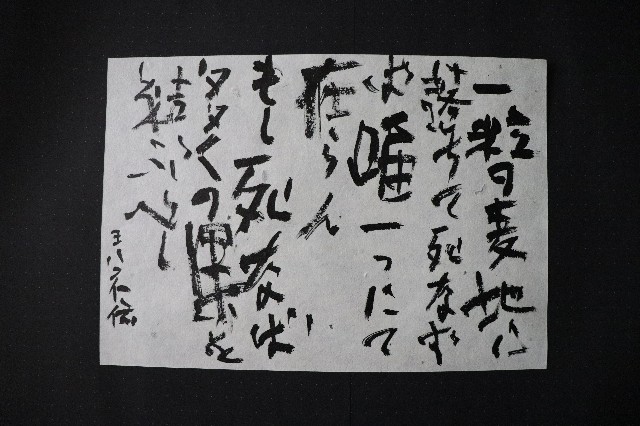 一粒の麦地に
落ちて死なず
ば唯一つにて
在らん
もし死なば
多くの果を
結ぶべし
ヨハネ伝